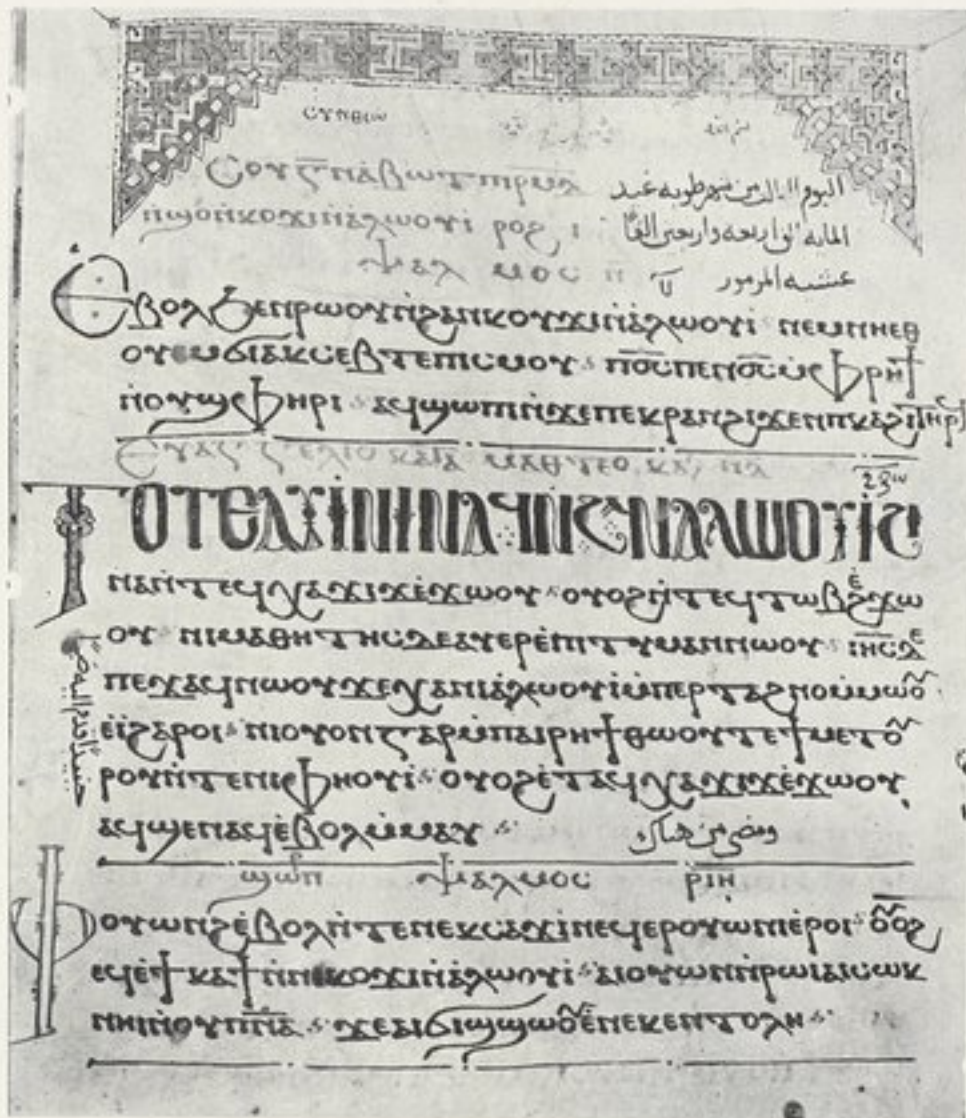 ⲥⲩⲛⲑⲉⲱ
ⲛⲕⲟⲩϫⲓⲛⲁⲗⲱⲟⲩⲓ
اليوم الثالث من شهر طوبه عيد
المايه الف اربعه واربعين الفا
ⲯⲁⲗⲙⲟⲥ ⲏ̅
عشيه المزمور
Ⲉⲃⲟⲗϧⲉⲛⲣⲱⲟⲩⲛ̀ϩⲁⲛⲕⲟⲩϫⲓⲛ̀ⲁⲗⲱⲟⲩⲓ ⲛⲉⲙⲛⲏⲉⲑ
ⲟⲩⲉⲙϭⲓⲁⲕⲥⲉⲃⲧⲉⲡⲓⲥⲙⲟⲩ ⲡⲟ̅ⲥ̅ⲡⲉⲛⲟ̅ⲥ̅ⲙ̀ⲫⲣⲏϯ
ⲛ̀ⲟⲩϣⲫⲏⲣⲓ ⲁϥϣⲱⲡⲓⲛ̀ϫⲉⲡⲉⲕⲣⲁⲛϩⲓϫⲉⲛⲡⲕⲁϩⲓⲧⲏⲣϥ
ⲦⲞⲦⲈⲀⲨⲒⲚⲒⲚⲀϤⲚ̀ϨⲀⲚⲀⲖⲰⲞⲨⲒϨⲒ
ⲛⲁⲛ̀ⲧⲉϥⲭⲁϫⲓϫⲉ̀ϫⲱⲟⲩ ⲟⲩⲟϩⲛ̀ⲧⲉϥⲧⲱⲃϩⲉ̀ϫⲱ
ⲟⲩ ⲛⲓⲙⲁⲑⲏⲧⲏⲥⲇⲉⲁⲩⲉⲣⲉ̀ⲡⲓⲧⲩⲙⲁⲛⲛⲱⲟⲩ ⲓⲏ̅ⲥ̅ⲇⲉ
ⲡⲉϫⲁϥⲛⲱⲟⲩϫⲉⲭⲁⲛⲓⲁ̀ⲗⲱⲟⲩⲓⲙ̀ⲡⲉⲣⲧⲁϩⲛⲟⲙⲙⲱⲟⲩ
ⲉ̀ⲓ̀ϩⲁⲣⲟⲓ ⲛⲓⲟⲩⲟⲛⲅⲁⲣⲙ̀ⲡⲁⲓⲣⲏϯⲑⲱⲟⲩⲧⲉϯⲙⲉⲧⲟⲩ
ⲣⲟⲩⲛ̀ⲧⲉⲛⲓⲫⲏⲟⲩⲓ ⲟⲩⲟϩⲉ̀ⲧⲁϥⲭⲁϫⲓϫⲉ̀ϫⲱⲟⲩ
ⲁϥϣⲉⲛⲁϥⲉ̀ⲃⲟⲗⲙ̀ⲙⲁⲩ
ⲯⲁⲗⲙⲟⲥ ⲣⲓⲏ
Ⲫⲟⲩⲱⲛϩⲉ̀ⲃⲟⲗⲛ̀ⲧⲉⲛⲉⲕⲥⲁϫⲓⲛⲉϥⲉⲣⲟⲩⲱⲓⲛⲓⲉ̀ⲣⲟⲓ ⲟⲩⲟϩ
ⲉϥⲉ̀ϯⲕⲁϯⲛ̀ⲛⲓⲕⲟⲩϫⲓⲛ̀ⲁⲗⲱⲟⲩⲓ ⲁⲓⲟⲩⲱⲛⲛ̀ⲣⲱⲓⲁⲓⲥⲱⲕ
ⲛⲏⲓⲛ̀ⲟⲩⲡⲛ̅ⲁ̅ ϫⲉⲁⲓϭⲓϣϣⲱⲟⲩⲉ̀ⲛⲉⲕⲉⲛⲧⲟⲗⲏ